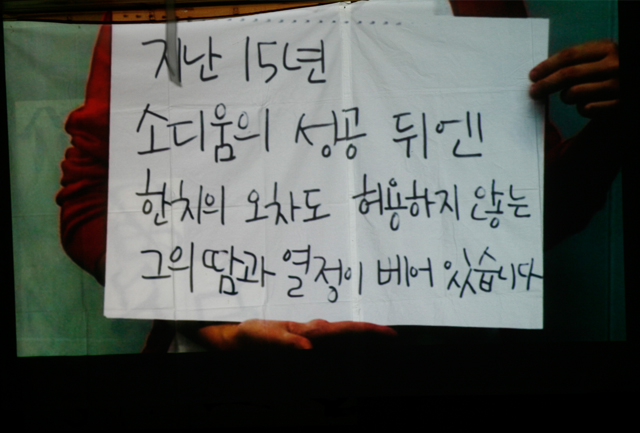 지난 15년
소디움의 성공 뒤엔
한치의 오차도 허용하지 않는
그의 땀과 열정이 베어 있습니다